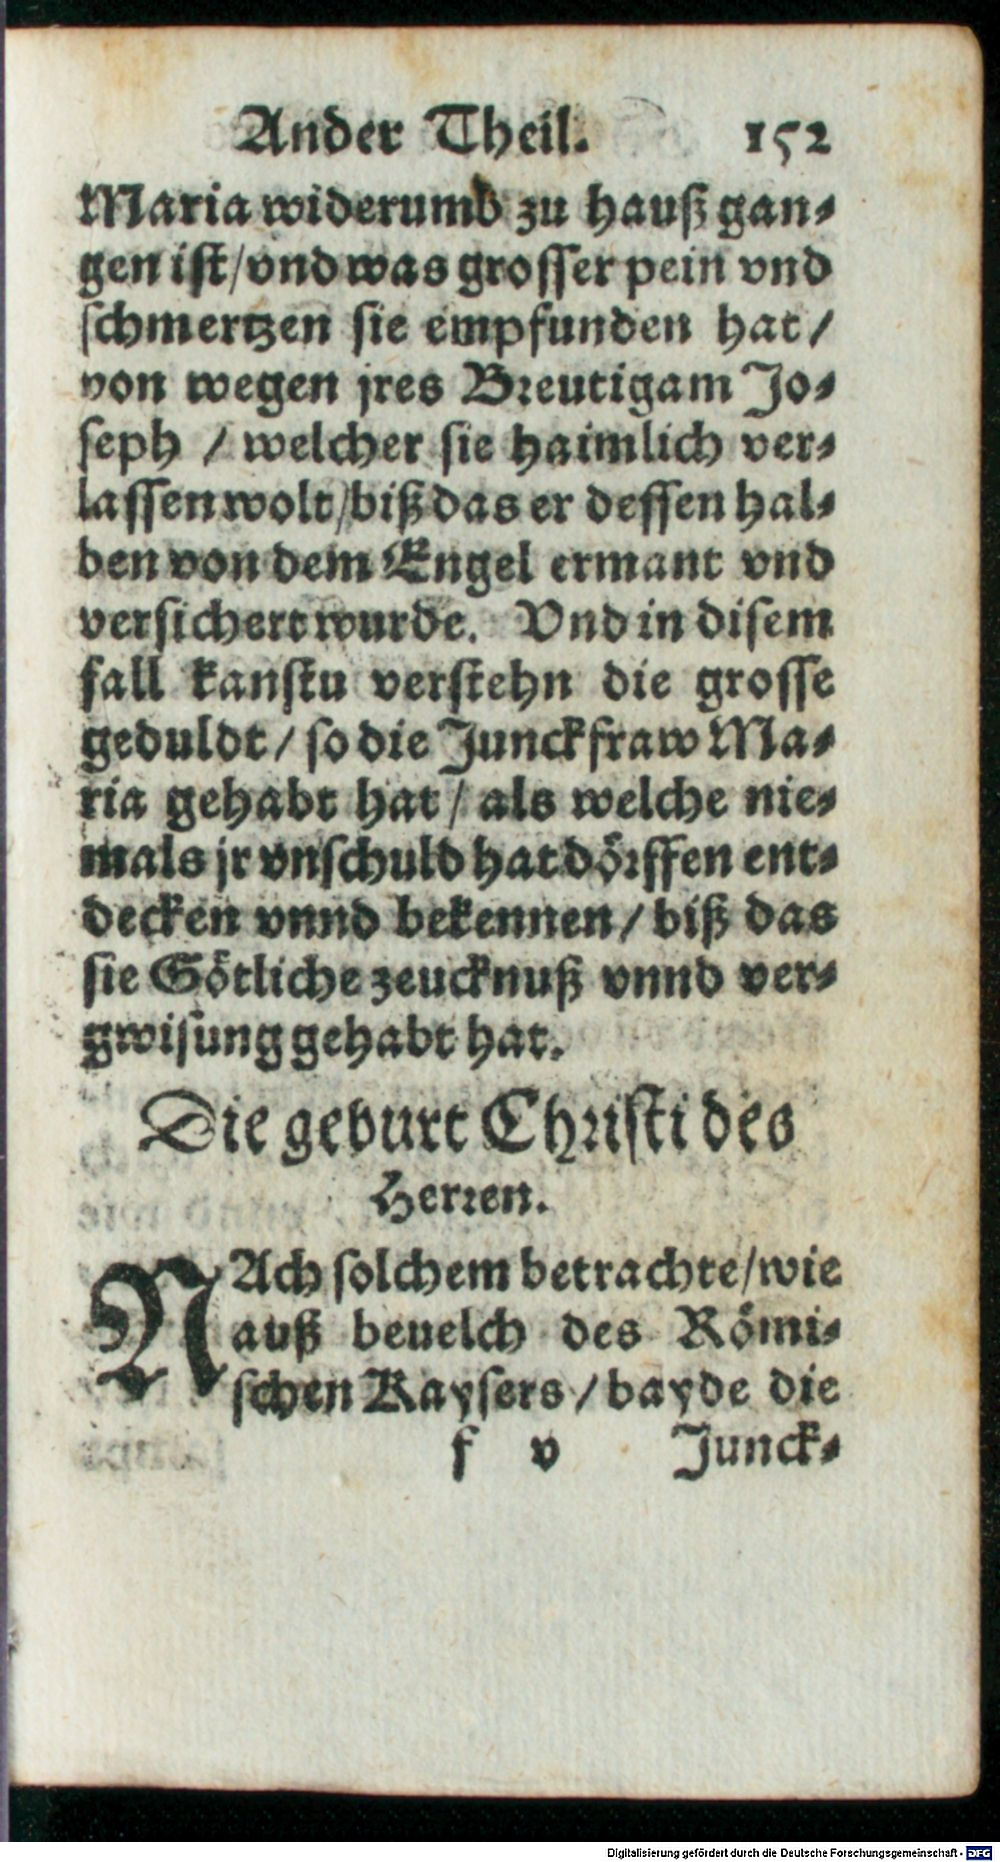 Ander Theil. 152
Maria widerumb zu hauß gan⸗
gen ist/vnd was grosser pein vnd
schmertzen sie empfunden hat/
von wegen jres Breutigam Jo⸗
seph / welcher sie haimlich ver⸗
lassen wolt/biß das er dessen hal⸗
ben von dem Engel ermant vnd
versichert wurde. Vnd in disem
fall kanstu verstehn die grosse
geduldt/ so die Junckfraw Ma⸗
ria gehabt hat/ als welche nie⸗
mals jr vnschuld hat dörffen ent⸗
decken vnnd bekennen/ biß das
sie Götliche zeucknuß vnnd ver⸗
gwisung gehabt hat.
Die geburt Christi des
Herren.
NAch solchem betrachte/wie
auß beuelch des Römi⸗
schen Kaysers/bayde die
f v Junck⸗
Digitalisierung gefördert durch die Deutsche Forschungsgemeinschaft - DFG